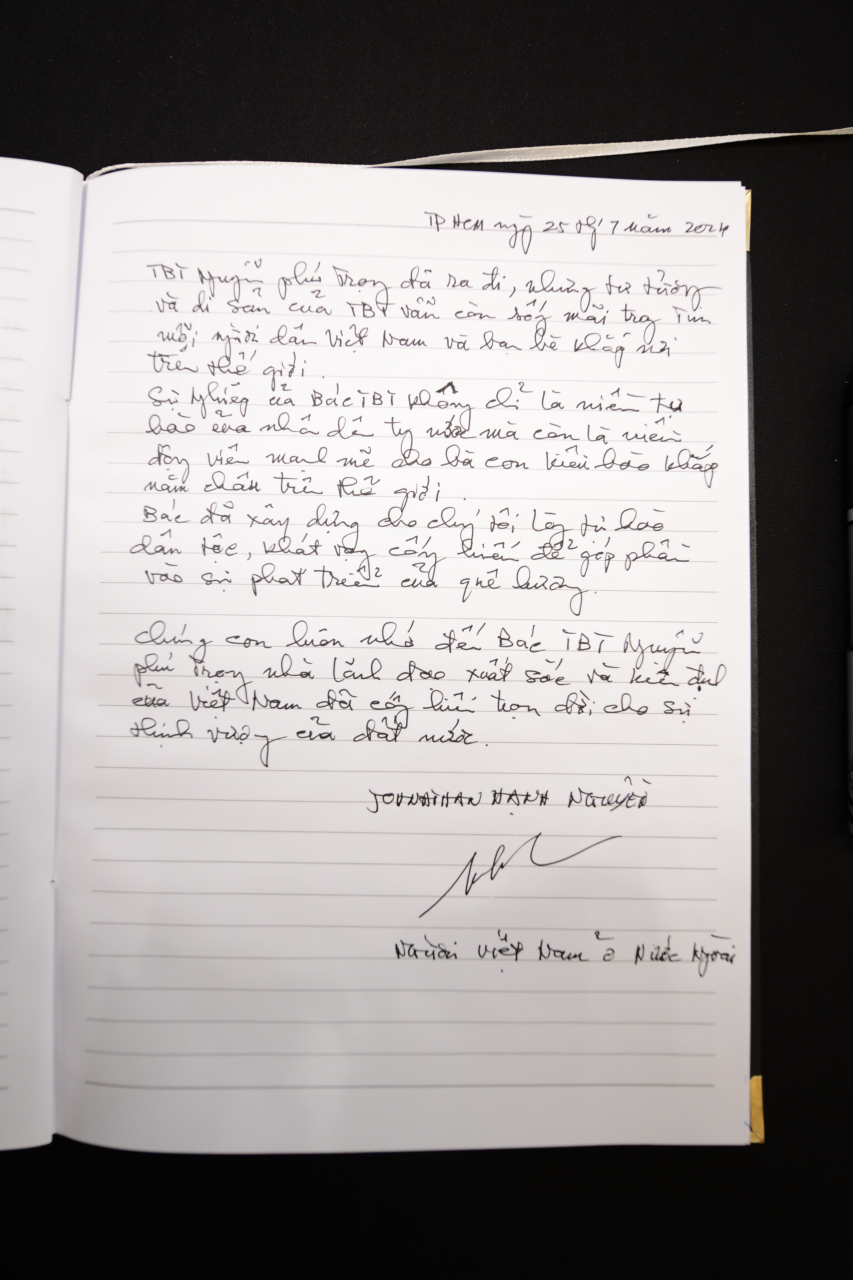 TP HCM ngỳ 25 thg 7 năm 2024
TBT Nguyễn phú Trọng đã ra đi, nhưng tư tưởng
và di sản của TBT vẫn còn sống mãi trong tim
mỗi người dân Việt Nam và bạn bè khắp nơi
trên thế giới.
Sự nghiệp của Bác TBT không chỉ là niềm tự
hào của nhân dân trg nước mà còn là niềm
động viên mạnh mẽ cho bà con kiều bào khắp
năm châu trên thế giới.
Bác đã xây dựng cho chúng tôi lòng tự hào
dân tộc, khát vọng cống hiến để góp phần
vào sự phát triển của quê hương.
chúng con luôn nhớ đến Bác TBT Nguyễn
phú Trọng nhà lãnh đạo xuất sắc và kiên định
của Việt Nam đã cống hiến trọn đời cho sự
thịnh vượng của đất nước.
JOHNATHAN HẠNH NGUYỄN
Người Việt Nam ở Nước Ngoài